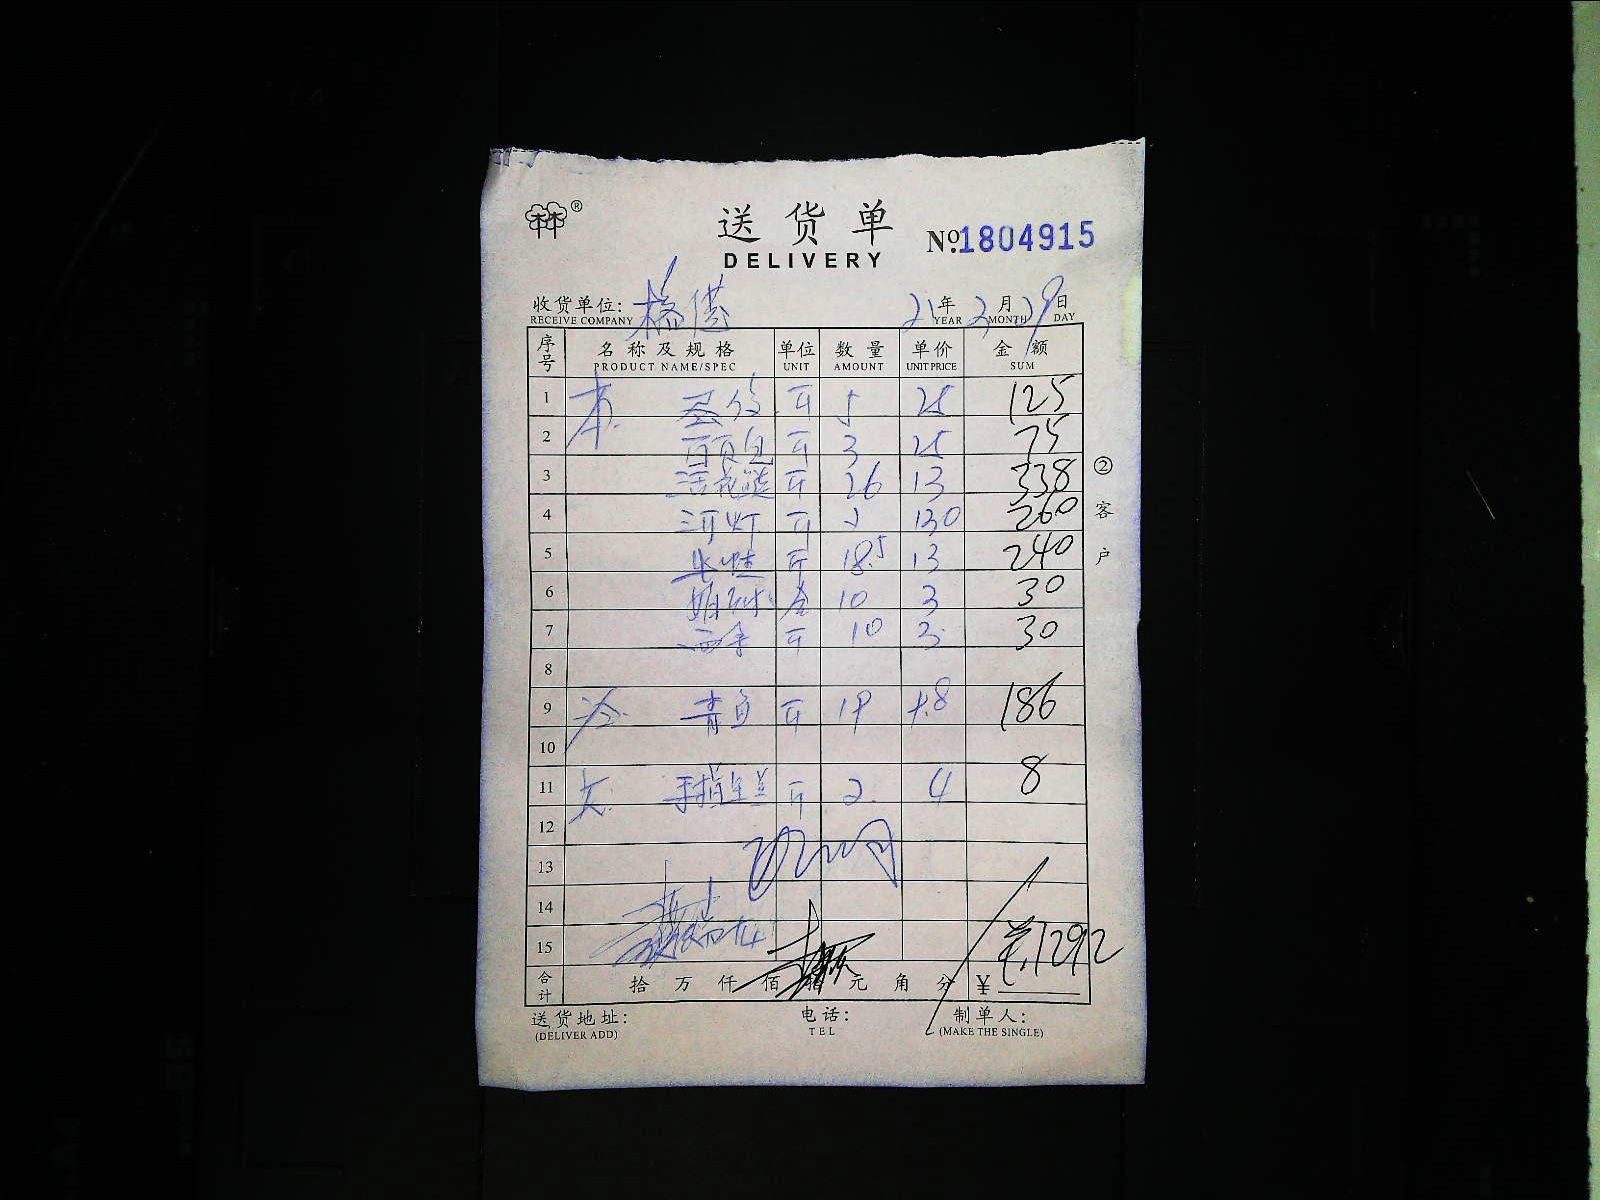 林®
送货单 №1804915
DELIVERY
收货单位: 21年2月29日
RECEIVE COMPANY YEAR MONTH DAY
序号 名称及规格 单位 数量 单价 金额
PRODUCT NAME/SPEC UNIT AMOUNT UNIT PRICE SUM
1 本 斤 5 25 125
2 百页包 斤 3 25 75
3 活花鲢 斤 26 13 338
4 斤 2 130 260
5 牛蛙 斤 18.5 13 240
6 10 3 30
7 斤 10 3 30
8
9 冷 青鱼 斤 19 9.8 186
10
11 手指生姜 斤 2 4 8
12
13
14
15 1292
合计 拾万仟佰拾元角分 ¥
② 客户
送货地址: 电话: 制单人:
(DELIVER ADD) TEL (MAKE THE SINGLE)